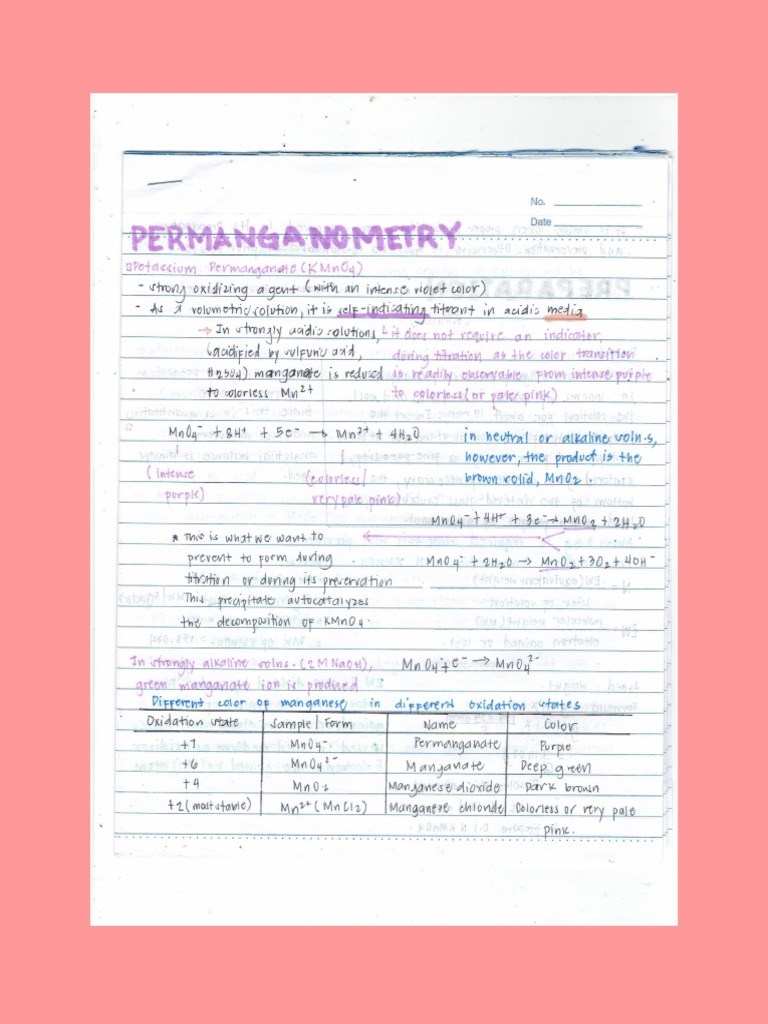 No.
Date
PERMANGANOMETRY
Potassium Permanganate (KMnO4)
- strong oxidizing agent (with an intense violet color)
- As a volumetric solution, it is self-indicating titrant in acidic media
→ In strongly acidic solutions,
(acidified by sulfuric acid,
H2SO4) manganate is reduced
to colorless Mn2+
it does not require an indicator,
during titration as the color transition
is readily observable from intense purple
to colorless (or paler pink).
MnO4- + 8H+ + 5e- → Mn2+ + 4H2O
(intense
purple)
(colorless/
very pale pink)
in neutral or alkaline soln.s,
however, the product is the
brown solid, MnO2.
MnO4- + 4H+ + 3e- → MnO2 + 2H2O
MnO4- + 2H2O → MnO2 + 3O2 + 4OH-
* This is what we want to
prevent to form during
titration or during its preservation
This precipitate autocatalyzes
the decomposition of KMnO4.
In strongly alkaline solns. (2M NaOH),
green manganate ion is produced
MnO4- + e- → MnO4 2-
Different color of manganese in different oxidation states
Oxidation state Sample/Form Name Color
+7 MnO4- Permanganate Purple
+6 MnO4 2- Manganate Deep green
+4 MnO2 Manganese dioxide Dark brown
+2 (most stable) Mn2+ (MnCl2) Manganese chloride Colorless or very pale
pink.